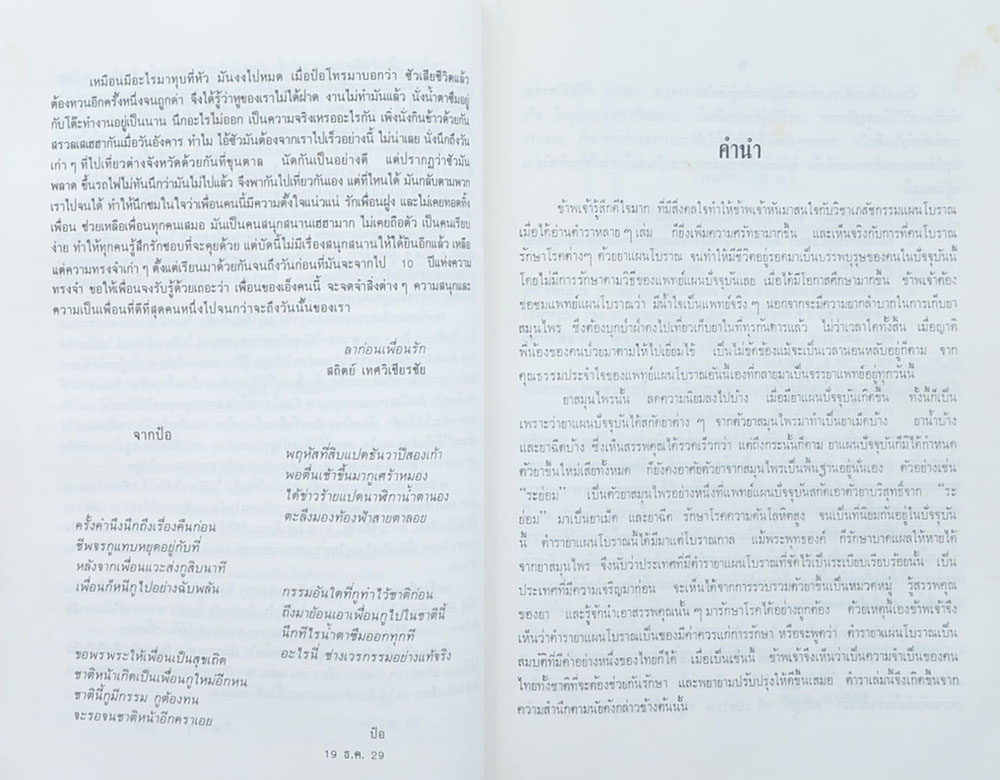 เหมือนมีอะไรมาทุบที่หัว มันงงไปหมด เมื่อป้อโทรมาบอกว่า ชัวเสียชีวิตแล้ว
ต้องทวนอีกครั้งหนึ่งจนถูกด่า จึงได้รู้ว่าหูของเราไม่ได้ฝาด งานไม่ทำมันแล้ว นั่งน้ำตาซึมอยู่
กับโต๊ะทำงานอยู่เป็นนาน นึกอะไรไม่ออก เป็นความจริงเหรออะไรกัน เพิ่งนั่งกินข้าวด้วยกัน
สรวลเสเฮฮากันเมื่อวันอังคาร ทำไม ไอ้ชัวมันต้องจากเราไปเร็วอย่างนี้ ไม่น่าเลย นั่งนึกถึงวัน
เก่า ๆ ที่ไปเที่ยวต่างจังหวัดด้วยกันที่ขุนตาล นัดกันเป็นอย่างดี แต่ปรากฏว่าชัวมัน
พลาด ขึ้นรถไฟไม่ทันนึกว่ามันไม่ไปแล้ว จึงพากันไปเที่ยวกันเอง แต่ที่ไหนได้ มันกลับตามพวก
เราไปจนได้ ทำให้นึกชมในใจว่าเพื่อนคนนี้มีความตั้งใจแน่วแน่ รักเพื่อนฝูง และไม่เคยทอดทิ้ง
เพื่อน ช่วยเหลือเพื่อนทุกคนเสมอ มันเป็นคนสนุกสนานเฮฮามา ไม่เคยถือตัว เป็นคนเรียบ
ง่าย ทำให้ทุกคนรู้สึกรักชอบที่จะคุยด้วย แต่บัดนี้ไม่มีเรื่องสนุกสนานให้ได้ยินอีกแล้ว เหลือ
แต่ความทรงจำเก่า ๆ ตั้งแต่เรียนมาด้วยกันจนถึงวันก่อนที่มันจะจากไป 10 ปีแห่งความ
ทรงจำ ขอให้เพื่อนจงรับรู้ด้วยเถอะว่า เพื่อนของเอ็งคนนี้ จะจดจำสิ่งต่าง ๆ ความสนุกและ
ความเป็นเพื่อนที่ดีที่สุดคนหนึ่งไปจนกว่าจะถึงวันนั้นของเรา
ลาก่อนเพื่อนรัก
สถิตย์ เทศวิเชียรชัย
จากป้อ
พฤหัสที่สิบแปดธันวาปีสองเก้า
พอตื่นเช้าขึ้นมากูเศร้าหมอง
ได้ข่าวร้ายแปดนาฬิกาน้ำตานอง
ตะลึงมองท้องฟ้าสายตาลอย
ครั้งคำนึงนึกถึงเรื่องคืนก่อน
ชีพจรกูแทบหยุดอยู่กับที่
หลังจากเพื่อนแวะส่งกูสิบนาที
เพื่อนก็หนีกูไปอย่างฉับพลัน
กรรมอันใดที่กูทำไว้ชาติก่อน
ถึงมาย้อนเอาเพื่อนกูไปในชาตินี้
นึกทีไรน้ำตาซึมออกทุกที
อะไรนี่ ช่างเวรกรรมอย่างแท้จริง
ขอพรพระให้เพื่อนเป็นสุขเถิด
ชาติหน้าเกิดเป็นเพื่อนกูใหม่อีกหน
ชาตินี้กูมีกรรม กูต้องทน
จะรอจนชาติหน้าอีกคราเอย
ป้อ
19 ธ.ค. 29
คำนำ
ข้าพเจ้ารู้สึกดีใจมาก ที่มีสิ่งดลใจทำให้ข้าพเจ้าหันมาสนใจกับวิชาเภสัชกรรมแผนโบราณ
เมื่อได้อ่านตำราหลาย ๆ เล่ม ก็ยิ่งเพิ่มความศรัทธามากขึ้น และเห็นจริงกับการที่คนโบราณ
รักษาโรคต่างๆ ด้วยยาแผนโบราณ จนทำให้มีชีวิตอยู่รอดมาเป็นบรรพบุรุษของคนในปัจจุบันนี้
โดยไม่มีการรักษาตามวิธีของแพทย์แผนปัจจุบันเลย เมื่อได้มีโอกาสศึกษามากขึ้น ข้าพเจ้าต้อง
ขอชมแพทย์แผนโบราณว่า มีน้ำใจเป็นแพทย์จริงๆ นอกจากจะมีความยากลำบากในการเก็บยา
สมุนไพร ซึ่งต้องบุกป่าฝ่าดงไปเที่ยวเก็บยาในที่ทุรกันดารแล้ว ไม่ว่าเวลาใดทั้งสิ้น เมื่อญาติ
พี่น้องของคนป่วยมาตามให้ไปเยี่ยมไข้ เป็นไม่ขัดข้องแม้จะเป็นเวลานอนหลับอยู่ก็ตาม จาก
คุณธรรมประจำใจของแพทย์แผนโบราณอันนี้เองที่กลายมาเป็นจรรยาแพทย์อยู่ทุกวันนี้
ยาสมุนไพรนั้น ลดความนิยมลงไปบ้าง เมื่อมียาแผนปัจจุบันเกิดขึ้น ทั้งนี้ก็เป็น
เพราะว่ายาแผนปัจจุบันได้สกัดยาต่าง ๆ จากตัวยาสมุนไพรมาทำเป็นยาเม็ดบ้าง ยาน้ำบ้าง
และยาฉีดบ้าง ซึ่งเห็นสรรพคุณได้รวดเร็วกว่า แต่ถึงกระนั้นก็ตาม ยาแผนปัจจุบันก็มิได้กำหนด
ตัวยาขึ้นใหม่เสียทั้งหมด ก็ยังคงอาศัยตัวยาจากสมุนไพรเป็นพื้นฐานอยู่นั่นเอง ตัวอย่างเช่น
“ระย่อม” เป็นตัวยาสมุนไพรอย่างหนึ่งที่แพทย์แผนปัจจุบันสกัดเอาตัวยาบริสุทธิ์จาก “ระ
ย่อม” มาเป็นยาเม็ด และยาฉีด รักษาโรคความดันโลหิตสูง จนเป็นที่นิยมกันอยู่ในปัจจุบัน
นี้ ตำรายาแผนโบราณนี้ได้มีมาแต่โบราณกาล แม้พระพุทธองค์ ก็รักษาบาดแผลให้หายได้
จากยาสมุนไพร จึงนับว่าประเทศที่มีตำรายาแผนโบราณที่จัดไว้เป็นระเบียบเรียบร้อยนั้น เป็น
ประเทศที่มีความเจริญมาก่อน จะเห็นได้จากการรวบรวมตัวยาขึ้นเป็นหมวดหมู่ รู้สรรพคุณ
ของยา และรู้จักนำเอาสรรพคุณนั้น ๆ มารักษาโรคได้อย่างถูกต้อง ด้วยเหตุนี้เองข้าพเจ้าจึง
เห็นว่าตำรายาแผนโบราณเป็นของมีค่าควรแก่การรักษา หรือจะพูดว่า ตำรายาแผนโบราณเป็น
สมบัติที่มีค่าอย่างหนึ่งของไทยก็ได้ เมื่อเป็นเช่นนี้ ข้าพเจ้าจึงเห็นว่าเป็นความจำเป็นของคน
ไทยทั้งชาติที่จะต้องช่วยกันรักษา และพยายามปรับปรุงให้ดีขึ้นเสมอ ตำราเล่มนี้จึงเกิดขึ้นจาก
ความสำนึกตามนัยดังกล่าวข้างต้นนั้น